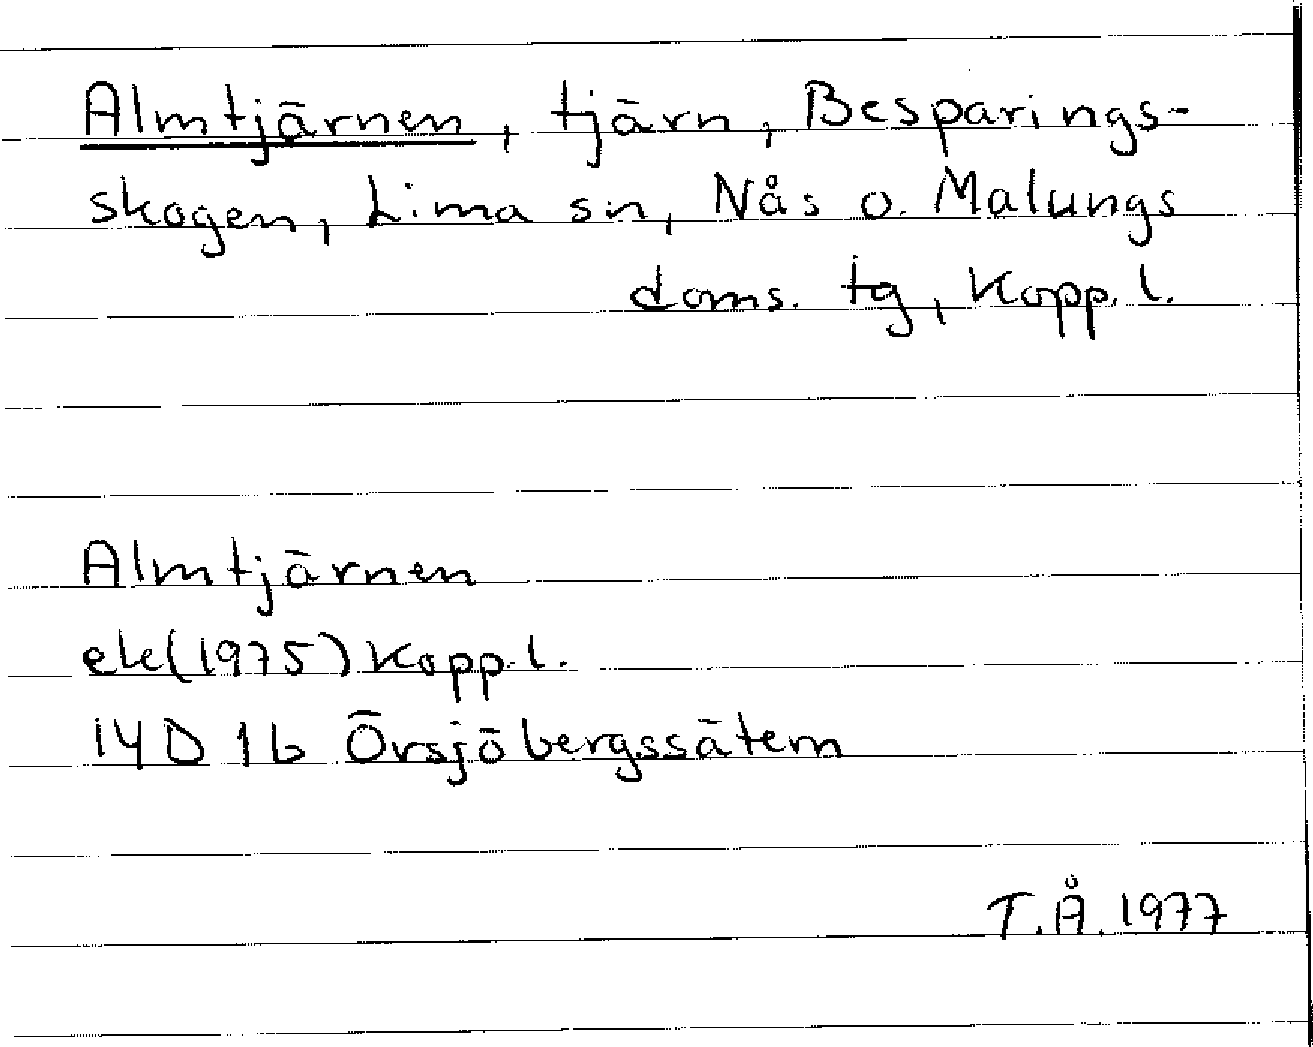 Almtjärnen, tjärn, Besparings-
skogen, Lima sn, Nås o. Malungs
doms. tg, Kopp. l.
Almtjärnen
ek(1975) Kopp. l.
14D 1b Örsjöbergssätern
T.Å. 1977